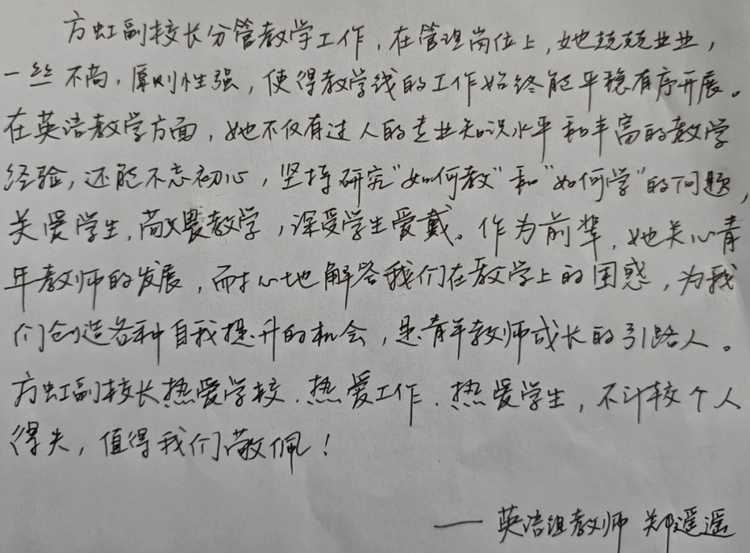 方虹副校长分管教学工作，在管理岗位上，她兢兢业业，
一丝不苟，原则性强，使得教学线的工作始终能平稳有序开展。
在英语教学方面，她不仅有过人的专业知识水平和丰富的教学
经验，还能不忘初心，坚持研究“如何教”和“如何学”的问题，
关爱学生，敬畏教学，深受学生爱戴。作为前辈，她关心青
年教师的发展，耐心地解答我们在教学上的困惑，为我
们创造各种自我提升的机会，是青年教师成长的引路人。
方虹副校长热爱学校、热爱工作、热爱学生，不计较个人
得失，值得我们敬佩！
——英语组教师 郑遥遥